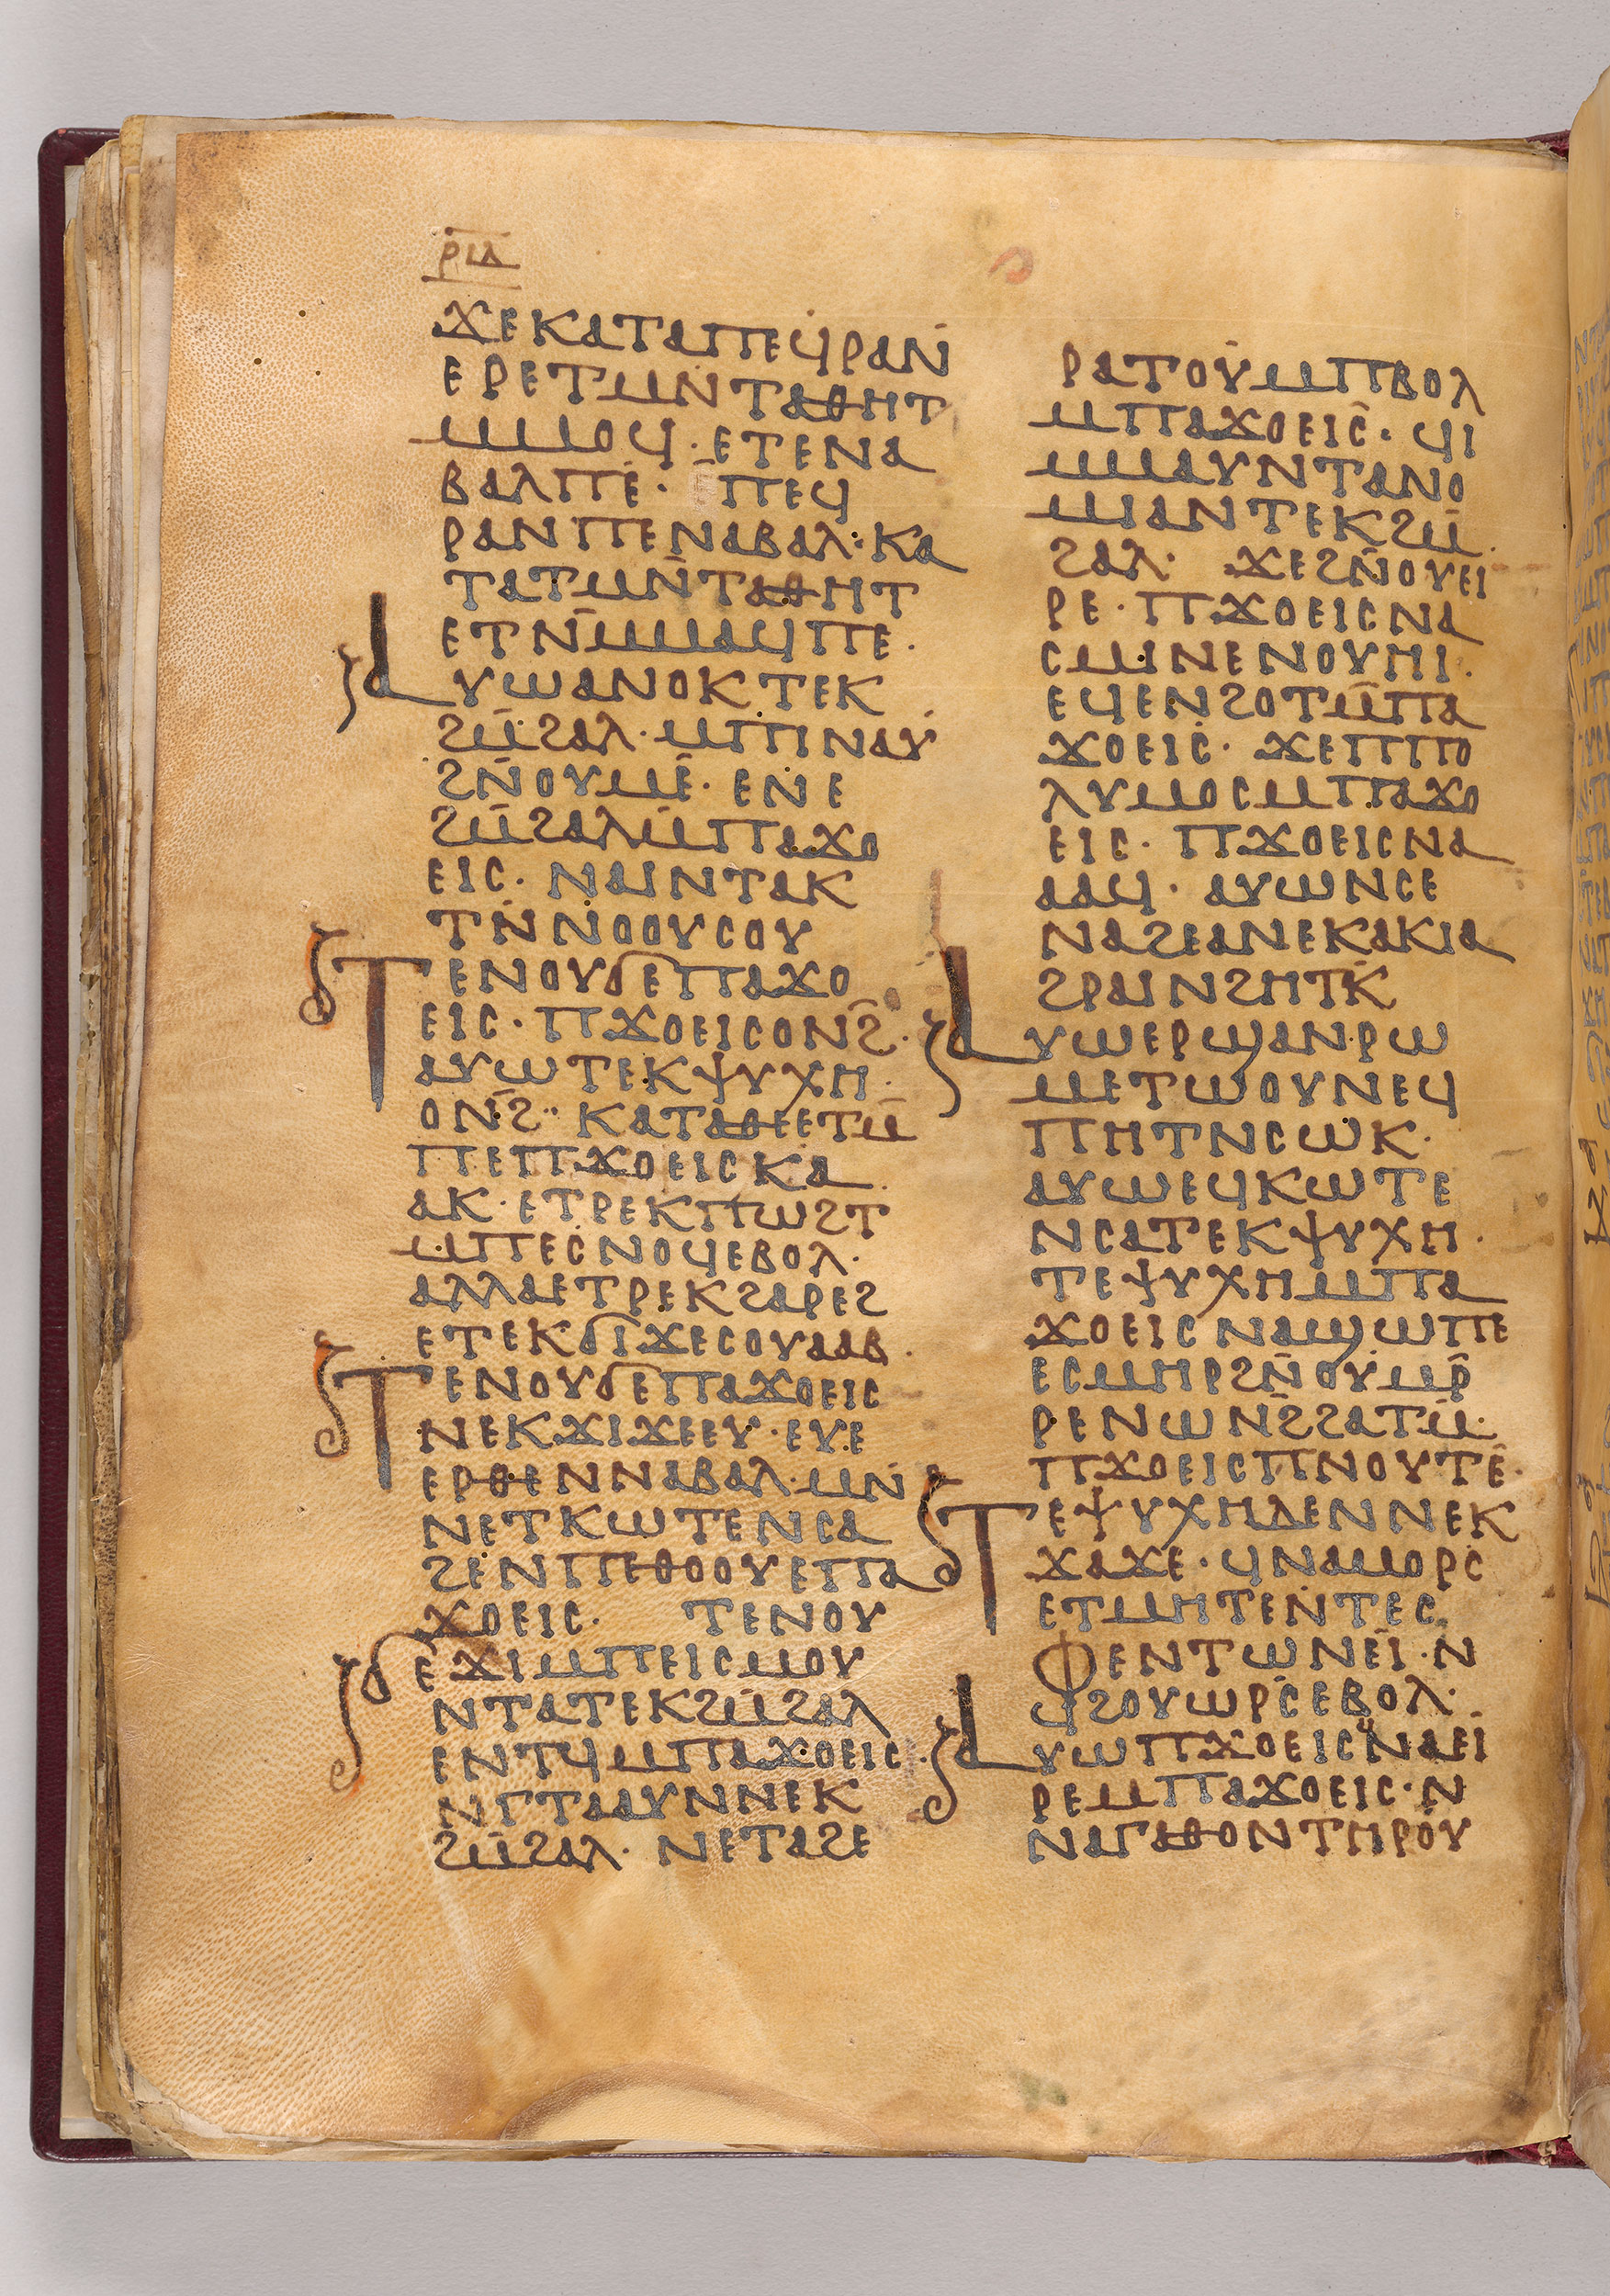 ⲣⲓⲇ
ϫⲉⲕⲁⲧⲁⲡⲉϥⲣⲁⲛ
ⲉⲣⲉⲧⲙⲛⲧⲁⲑⲏⲧ
ⲙⲙⲟϥ·ⲉⲧⲉⲛⲁ
ⲃⲁⲗⲡⲉ· ⲡⲉϥ
ⲣⲁⲛⲡⲉⲛⲁⲃⲁⲗ:ⲕⲁ
ⲧⲁⲧⲙⲛ̄ⲧⲁⲑⲏⲧ
ⲉⲧⲛ̄ⲙⲙⲁϥⲡⲉ·
ⲁⲩⲱⲁⲛⲟⲕⲧⲉⲕ
ϩⲙ̄ϩⲁⲗ·ⲙⲡⲓⲛⲁⲩ
ϩⲛ̄ⲟⲩⲙⲉ·ⲉⲛⲉ
ϩⲙ̄ϩⲁⲗⲙ̄ⲡⲁϫⲟ
ⲉⲓⲥ·ⲛⲁⲓⲛⲧⲁⲕ
ⲧⲛ̄ⲛⲟⲟⲩⲥⲟⲩ
ⲧⲉⲛⲟⲩϭⲉⲡⲁϫⲟ
ⲉⲓⲥ·ⲡϫⲟⲉⲓⲥⲟⲛϩ̄·
ⲁⲩⲱⲧⲉⲕⲯⲩⲭⲏ·
ⲟⲛϩ̄·ⲕⲁⲧⲁⲑⲉⲉⲧⲙ̄
ⲡⲉⲡϫⲟⲉⲓⲥⲕⲁ
ⲁⲕ·ⲉⲧⲣⲉⲕⲡⲱϩⲧ
ⲙⲡⲉⲥⲛⲟϥⲉⲃⲟⲗ·
ⲁⲗⲗⲁⲉⲧⲣⲉⲕϩⲁⲣⲉϩ
ⲉⲧⲉⲕϭⲓϫⲉⲥⲟⲩⲁⲁⲃ·
ⲧⲉⲛⲟⲩϭⲉⲡⲁϫⲟⲉⲓⲥ
ⲛⲉⲕϫⲓϫⲉⲉⲩ·ⲉⲩⲉ
ⲉⲣⲑⲉⲛⲛⲁⲃⲁⲗ·ⲙⲛ̄
ⲛⲉⲧⲕⲱⲧⲉⲛⲥⲁ
ϩⲉⲛⲡⲉⲑⲟⲟⲩⲉⲡⲁ
ϫⲟⲉⲓⲥ· ⲧⲉⲛⲟⲩ
ϭⲉϫⲓⲙⲡⲉⲓⲥⲙⲟⲩ
ⲛⲧⲁⲧⲉⲕϩⲙ̄ϩⲁⲗ
ⲉⲛⲧϥⲙⲡⲁϫⲟⲉⲓⲥ·
ⲛⲅⲧⲁⲁⲩⲛⲛⲉⲕ
ϩⲙ̄ϩⲁⲗ· ⲛⲉⲧⲁϩⲉ
ⲣⲁⲧⲟⲩⲙⲡⲃⲟⲗ
ⲙⲡⲁϫⲟⲉⲓⲥ·ϥⲓ
ⲙⲙⲁⲩⲛⲧⲁⲛⲟ
ⲙⲓⲁⲛⲧⲉⲕϩⲙ̄
ϩⲁⲗ· ϫⲉϩⲛ̄ⲟⲩⲉⲓ
ⲣⲉ·ⲡϫⲟⲉⲓⲥⲛⲁ
ⲥⲙⲓⲛⲉⲛⲟⲩⲏⲓ·
ⲉϥⲉⲛϩⲟⲧⲙ̄ⲡⲁ
ϫⲟⲉⲓⲥ·ϫⲉⲡⲡⲟ
ⲗⲩⲙⲟⲥⲙⲡⲁϫⲟ
ⲉⲓⲥ·ⲡϫⲟⲉⲓⲥⲛⲁ
ⲁⲁϥ·ⲁⲩⲱⲛⲥⲉ
ⲛⲁϩⲉⲁⲛⲉⲕⲁⲕⲓⲁ
ϩⲣⲁⲓⲛϩⲏⲧⲕ̄
ⲁⲩⲱⲉⲣϣⲁⲛⲣⲱ
ⲙⲉⲧⲱⲟⲩⲛⲉϥ
ⲡⲏⲧⲛⲥⲱⲕ·
ⲁⲩⲱⲉϥⲕⲱⲧⲉ
ⲛⲥⲁⲧⲉⲕⲯⲩⲭⲏ·
ⲧⲉⲯⲩⲭⲏⲙⲡⲁ
ϫⲟⲉⲓⲥⲛⲁϣⲱⲡⲉ
ⲉⲥⲙⲏⲣϩⲛ̄ⲟⲩⲙⲣ̄
ⲣⲉⲛⲱⲛϩ̄ϩⲁⲧⲙ̄·
ⲡϫⲟⲉⲓⲥⲡⲛⲟⲩⲧⲉ·
ⲧⲉⲯⲩⲭⲏⲇⲉⲛⲛⲉⲕ
ϫⲁϫⲉ·ϥⲛⲁⲙⲟⲣⲥ
ⲉⲧⲙⲏⲧⲉⲛⲧⲉⲥ
ⲫⲉⲛⲧⲱⲛⲉⲓ·ⲛ
ϥϩⲟⲩⲱⲣⲥⲉⲃⲟⲗ·
ⲁⲩⲱⲡϫⲟⲉⲓⲥⲛⲁⲉⲓ
ⲣⲉⲙⲡⲁϫⲟⲉⲓⲥ·ⲛ
ⲛⲁⲅⲁⲑⲟⲛⲧⲏⲣⲟⲩ